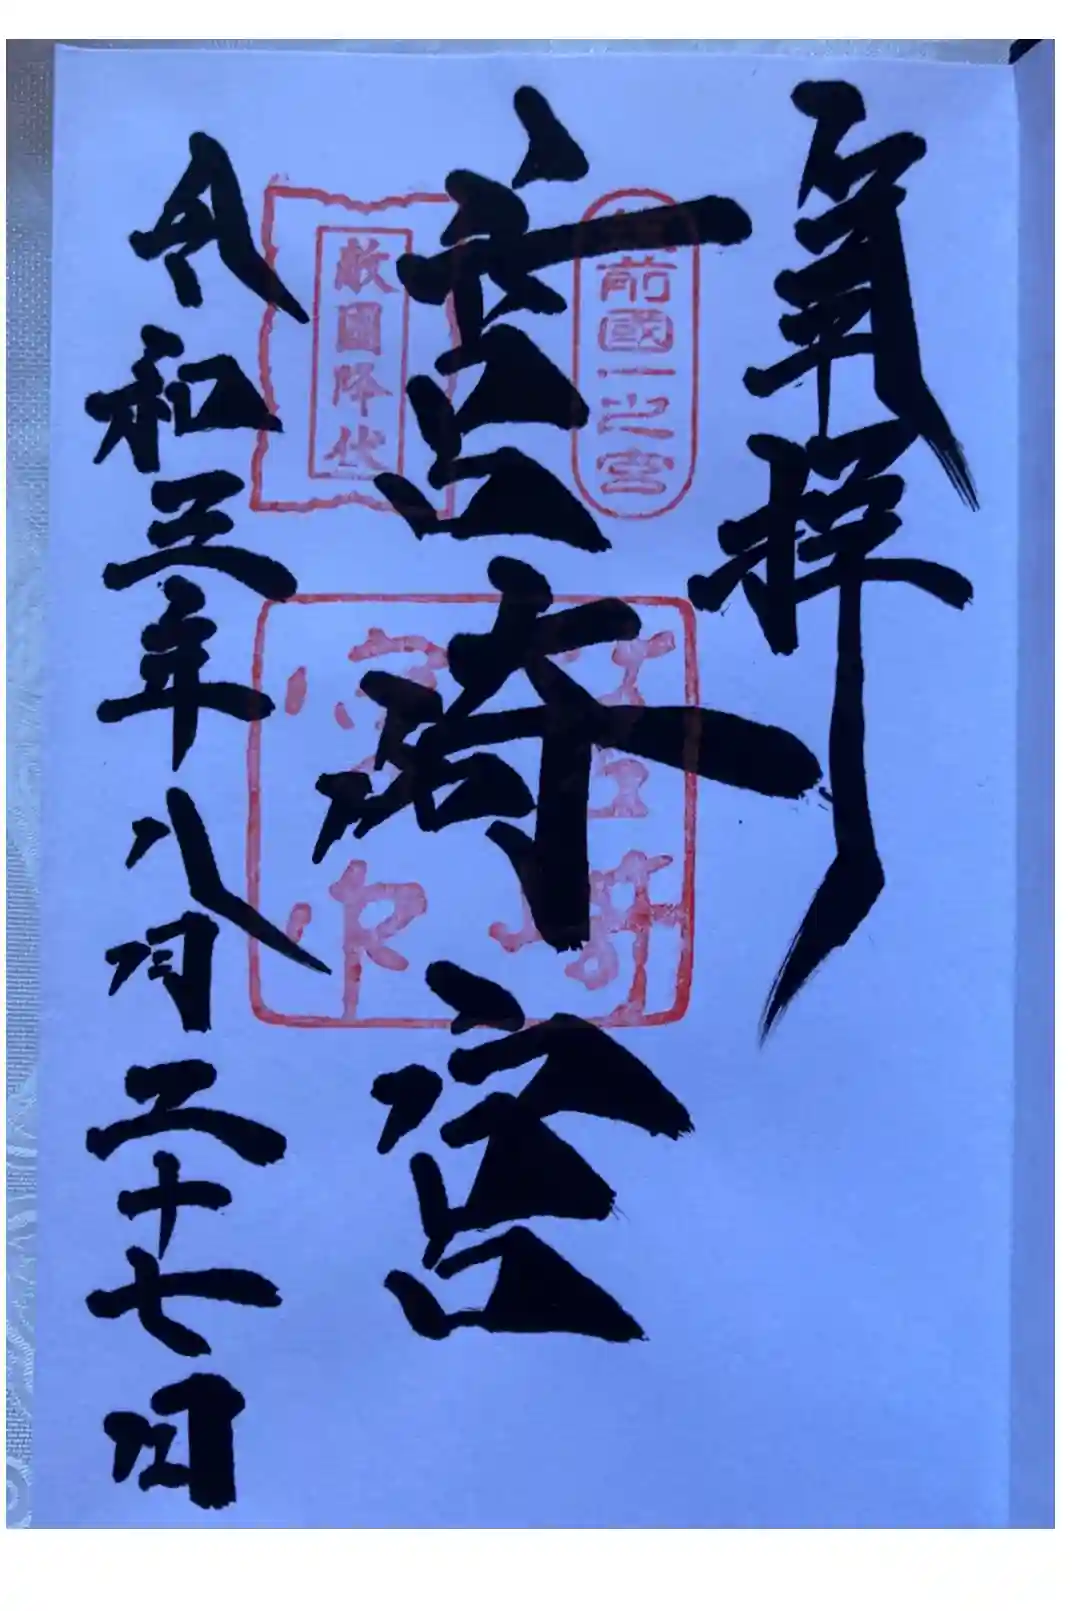 拝
筑前國一之宮
筥崎宮
敵國降伏
筥崎宮印
令和三年八月二十七日